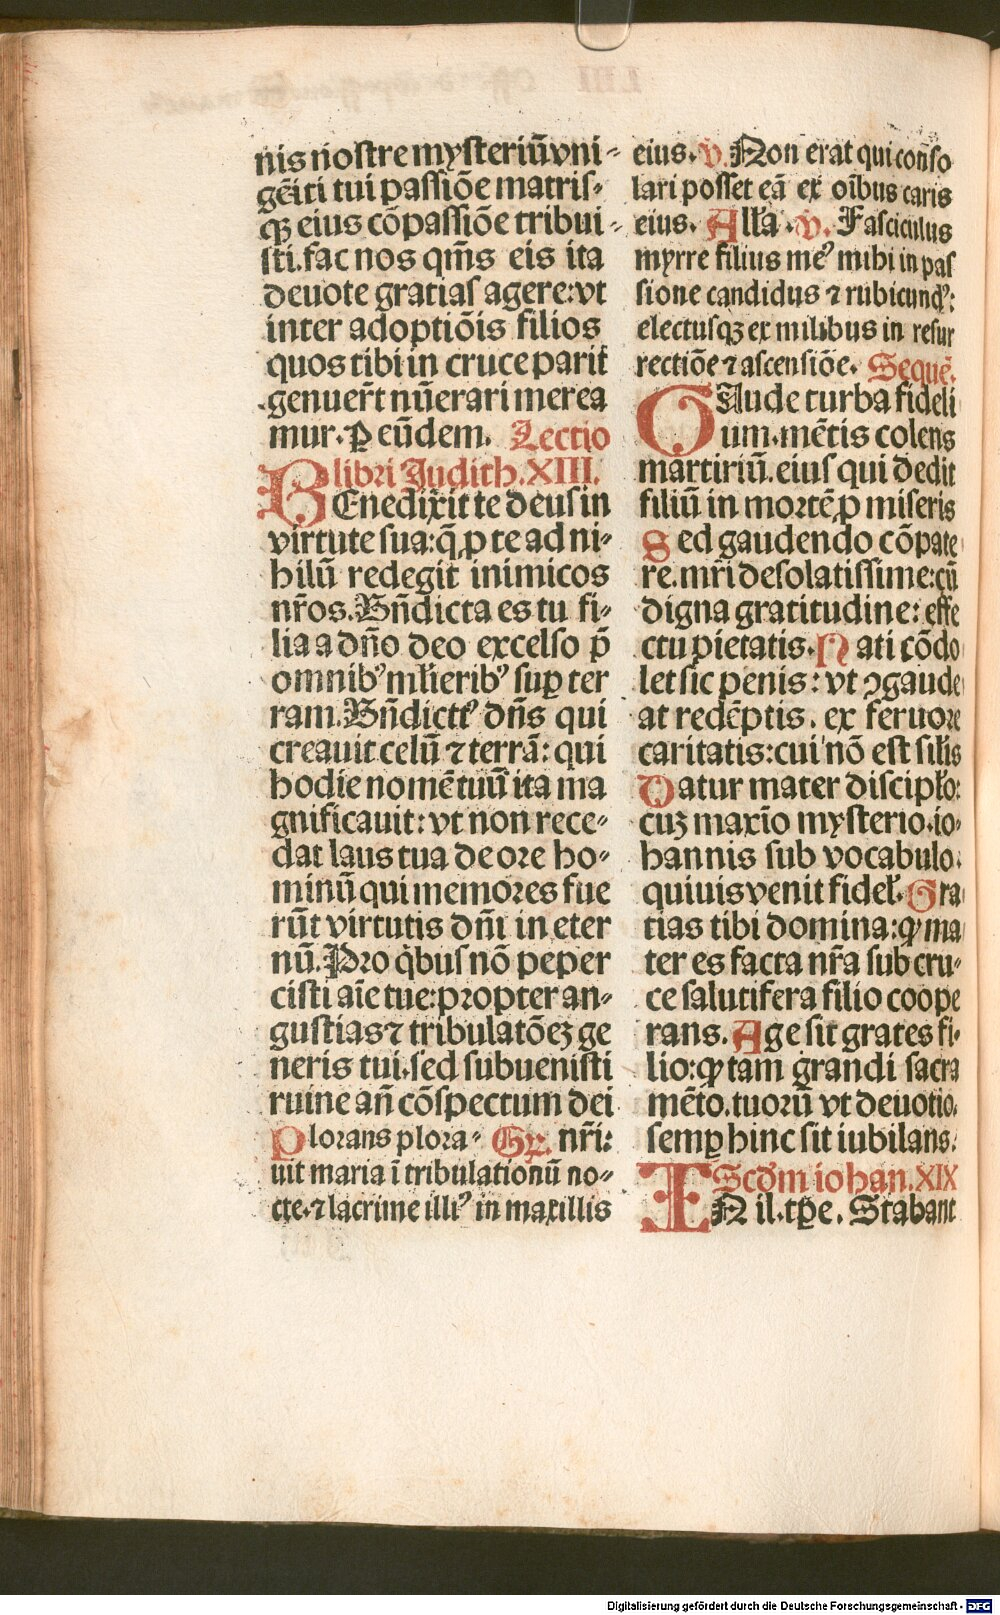 nis nostre mysteriū vni-
gēiti tui passiōe matris-
qꝫ eius cōpassiōe tribui-
sti. fac nos qm̄s eis ita
deuote gratias agere: vt
inter adoptiōis filios
quos tibi in cruce parit̄
genuer̄t nūerari merea
mur. P eūdem. Lectio
libri Judith. XIII.
BEnedixit te deus in
virtute sua: q̄ ꝑ te ad ni-
hilū redegit inimicos
nr̄os. Bn̄dicta es tu fi-
lia a dn̄o deo excelso p̄
omnibꝰ ml̄ieribꝰ suꝑ ter
ram. Bn̄dictꝰ dn̄s qui
creauit celū ⁊ terrā: qui
hodie nomē tuū ita ma
gnificauit: vt non rece-
dat laus tua de ore ho-
minū qui memores fue
rūt virtutis dn̄i in eter
nū. Pro q̇bus nō peper
cisti aīe tue: propter an-
gustias ⁊ tribulatōeꝫ ge
neris tui. sed subuenisti
ruine an̄ cōspectum dei
Plorans plora- Gr̄. nr̄i:
uit maria ī tribulationū no-
cte. ⁊ lacrime illiꝰ in maxillis
eius. v. Non erat qui con̄so
lari posset eā ex oībus caris
eius. Alla. v. Fasciculus
myrre filius meꝰ mihi in pas
sione candidus ⁊ rubicundꝰ:
electusqꝫ ex milibus in resur
rectiōe ⁊ ascensiōe. Sequē.
GAude turba fideli
um. mētis colens
martiriū. eius qui dedit
filiū in mortē ꝓ miseris
Sed gaudendo cōpate
re. mr̄i desolatissime: cū
digna gratitudine: effe
ctu pietatis. Nati cōdo
let sic penis: vt ꝯgaude
at redēptis. ex feruore
caritatis: cui nō est sil̄is
Datur mater discipl̄o:
cuꝫ maxīo mysterio. io-
hannis sub vocabulo.
quiuis venit fidel̄. Gra
tias tibi domina: ꝙ ma
ter es facta nr̄a sub cru-
ce salutifera filio coope
rans. Age sit grates fi-
lio: ꝙ tam grandi sacra
mēto. tuorū vt deuotio.
semꝑ hinc sit iubilans.
Scd̄m iohan. XIX
IN il. tꝑe. Stabant
Digitalisierung gefördert durch die Deutsche Forschungsgemeinschaft - DFG